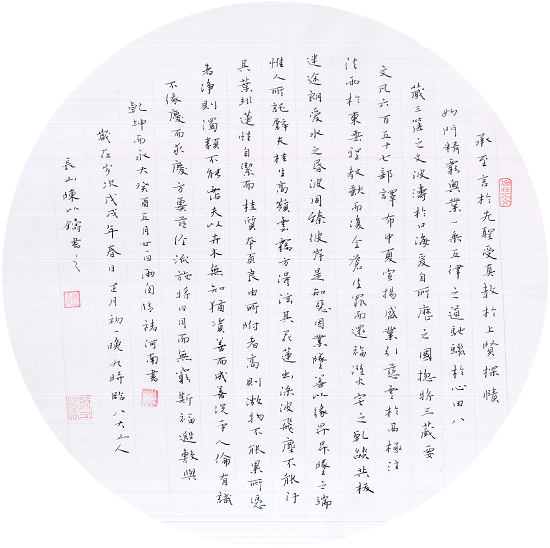 承至言於先聖受真教於上賢探賾
妙門精窮奧業一乘五律之道馳驟於心田八
藏三篋之文波濤於口海爰自所歷之國揔將三藏要
文凡六百五十七部譯布中夏宣揚盛業引慈雲於西極注
法雨於東垂聖教缺而復全蒼生罪而還福濕火宅之乾燄共拔
迷途朗愛水之昏波同臻彼岸是知惡因業墜善以緣昇昇墜之端
惟人所託譬夫桂生高嶺雲露方得泫其花蓮出淥波飛塵不能汙
其葉非蓮性自潔而桂質本貞良由所附者高則微物不能累所憑
者淨則濁類不能沾夫以卉木無知猶資善而成善況乎人倫有識
不緣慶而求慶方冀茲經流施將日月而無窮斯福遐敷與
乾坤而永大癸酉五月廿一雨褚河南書
歲在岁次戊戌年春日正月初一晚九時臨八大山人
長山陳以書之